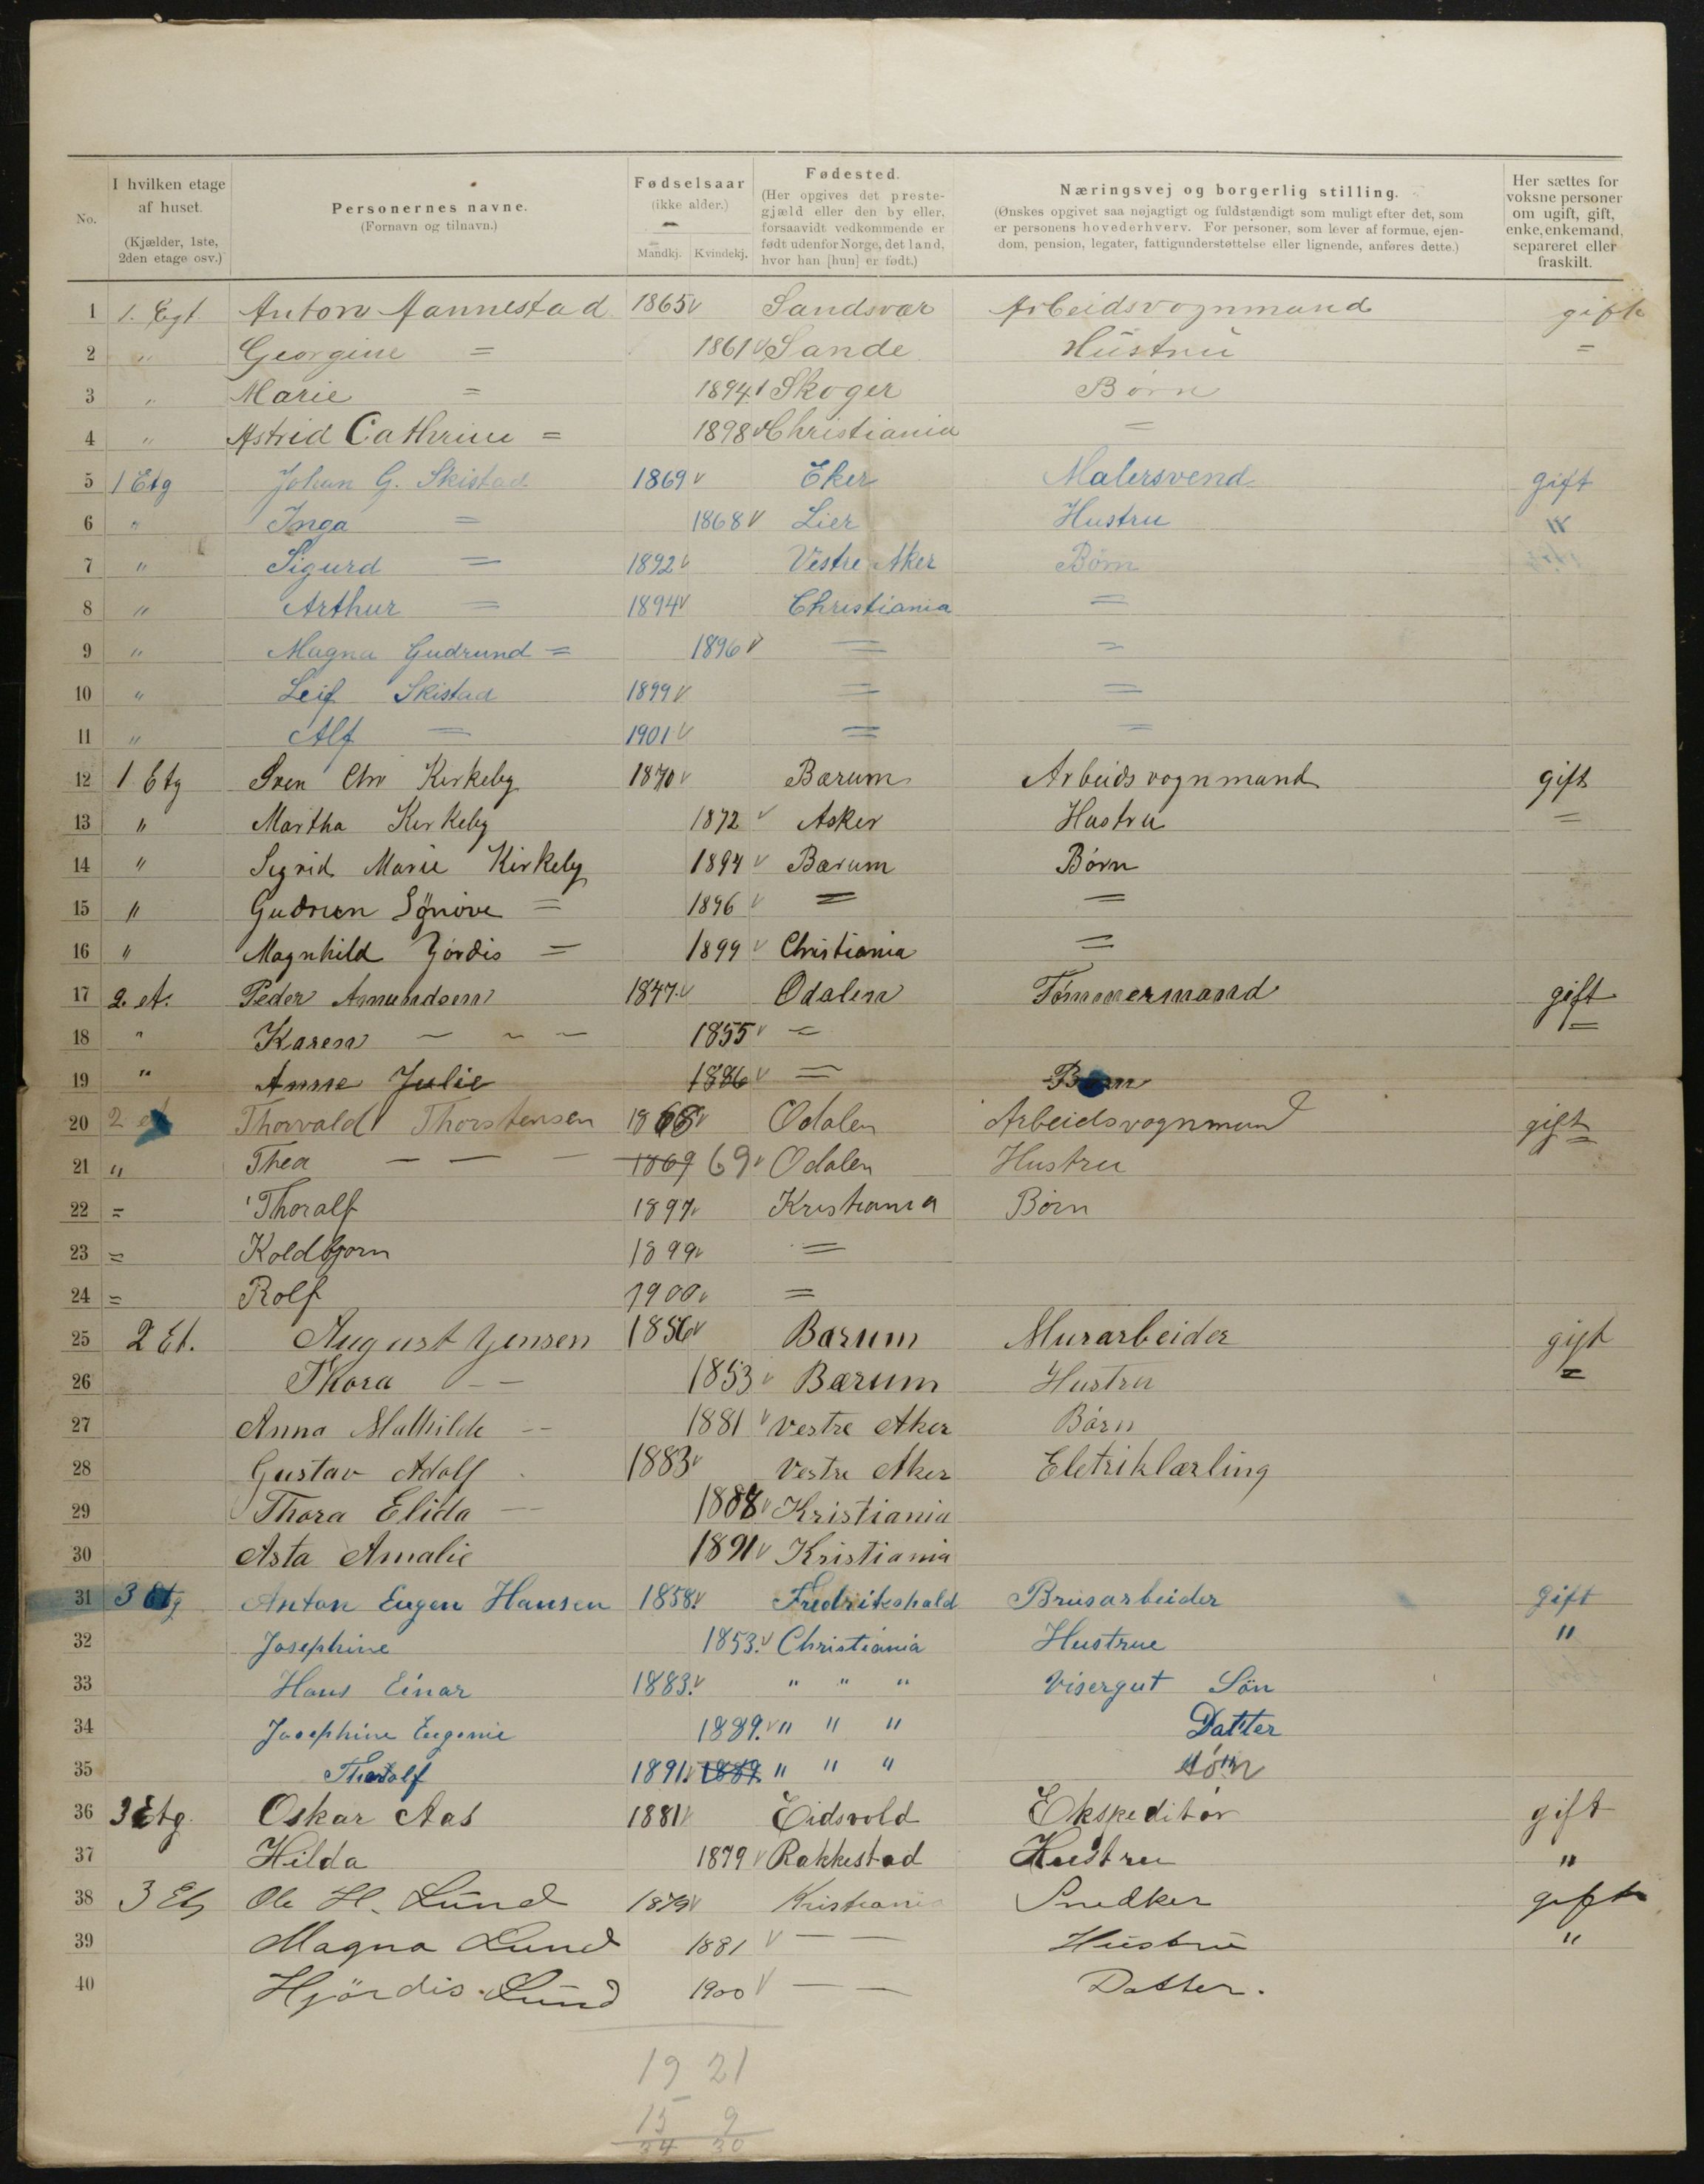 No.
I hvilken etage af huset. (Kjælder, 1ste, 2den etage osv.)
Personernes navne. (Fornavn og tilnavn.)
Fødselsaar (ikke alder.) Mandkj. Kvindekj.
Fødested. (Her opgives det prestegjæld eller den by eller, forsaavidt vedkommende er født udenfor Norge, det land, hvor han [hun] er født.)
Næringsvej og borgerlig stilling. (Ønskes opgivet saa nøjagtigt og fuldstændigt som muligt efter det, som er personens hovederhverv. For personer, som lever af formue, ejendom, pension, legater, fattigunderstøttelse eller lignende, anføres dette.)
Her sættes for voksne personer om ugift, gift, enke, enkemand, separeret eller fraskilt.
1 1. Egt. Anton Aannestad 1865 Sandsvær Arbeidsvognmand gift
2 " Georgine = 1861 Sande Hustru =
3 " Marie = 1894 Skoger Børn
4 " Astrid Cathrine = 1898 Christiania =
5 1 Etg Johan G. Skistad 1869 Eker Malersvend gift
6 " Inga = 1868 Lier Hustru "
7 " Sigurd = 1892 Vestre Aker Børn
8 " Arthur = 1894 Christiania =
9 " Magna Gudrund = 1896 = =
10 " Leif Skistad 1899 = =
11 " Alf = 1901 = =
12 1 Etg Sven Chr Kirkeby 1870 Bærum Arbeids vognmand gift
13 " Martha Kirkeby 1872 Asker Hustru =
14 " Sigrid Marie Kirkeby 1894 Bærum Børn
15 " Gudrun Sÿnøve = 1896 = =
16 " Magnhild Hjørdis = 1899 Christiania =
17 2. et. Peder Asmundsen 1847. Odalen Tømmermand gift
18 " Karen — — — 1855 = =
19 " Anne Julie 1886 = Børn
20 2 et Thorvald Thorstensen 1868 Odalen Arbeidsvognmand gift
21 " Thea — — — 1869 69 Odalen Hustru =
22 = Thoralf 1897 Kristiania Børn
23 = Koldbjørn 1899 =
24 = Rolf 1900 =
25 2 Et. August Jensen 1856 Bærum Murarbeider gift
26 Thora — — 1853 Bærum Hustru =
27 Anna Mathilde — 1881 Vestre Aker Børn
28 Gustav Adolf 1883 Vestre Aker Eletriklærling
29 Thora Elida — 1887 Kristiania
30 Asta Amalie 1891 Kristiania
31 3 Etg Anton Eugen Hansen 1858. Fredrikshald Brusarbeider Gift
32 Josephine 1853. Christiania Hustrue "
33 Hans Einar 1883. " " " Visergut Søn
34 Josephine Eugenie 1889. " " " Datter
35 Thoralf 1891. 1889. " " " Søn
36 3 Etg. Oskar Aas 1881 Eidsvold Ekspeditør gift
37 Hilda 1879 Rakkestad Hustru "
38 3 Etg Ole H. Lund 1879 Kristiania Snedker gift
39 Magna Lund 1881 — — Hustru "
40 Hjördis Lund 1900 — — Datter.
19 21
15 9
34 30